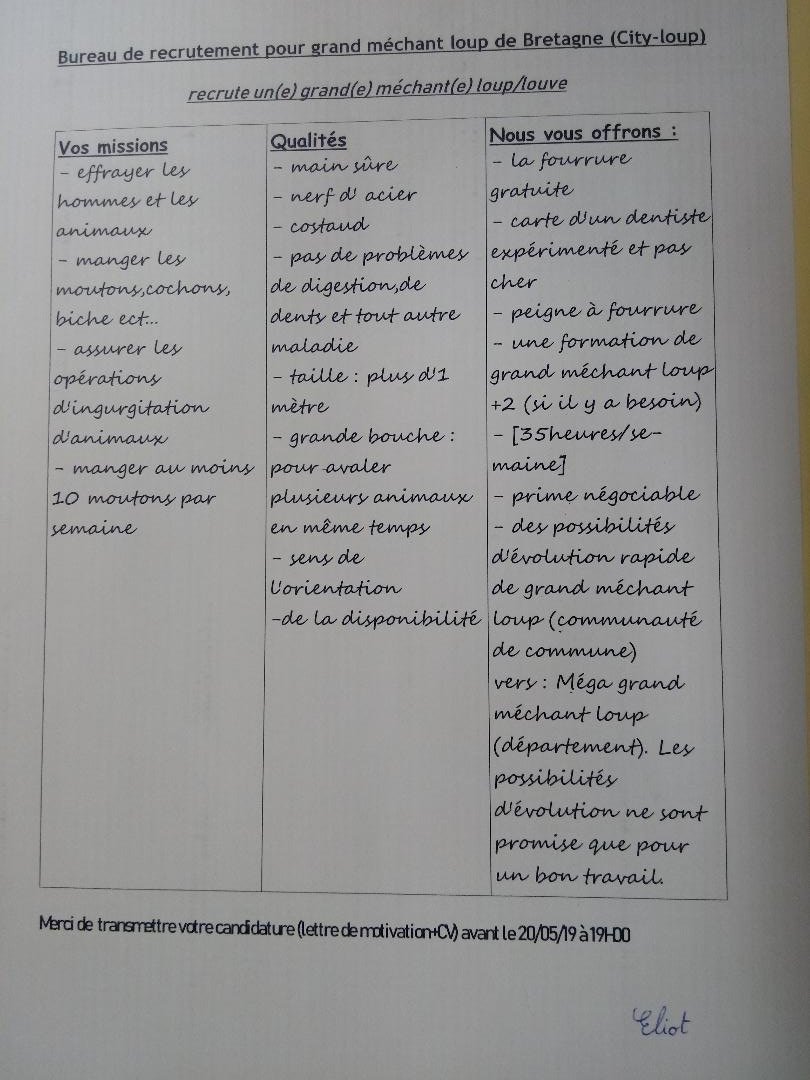 Bureau de recrutement pour grand méchant loup de Bretagne (City-loup)
recrute un(e) grand(e) méchant(e) loup/louve
Vos missions
- effrayer les
hommes et les
animaux
- manger les
moutons,cochons,
biche ect...
- assurer les
opérations
d'ingurgitation
d'animaux
- manger au moins
10 moutons par
semaine
Qualités
- main sûre
- nerf d' acier
- costaud
- pas de problèmes
de digestion,de
dents et tout autre
maladie
- taille : plus d'1
mètre
- grande bouche :
pour avaler
plusieurs animaux
en même temps
- sens de
l'orientation
-de la disponibilité
Nous vous offrons :
- la fourrure
gratuite
- carte d'un dentiste
expérimenté et pas
cher
- peigne à fourrure
- une formation de
grand méchant loup
+2 (si il y a besoin)
- [35heures/se-
maine]
- prime négociable
- des possibilités
d'évolution rapide
de grand méchant
loup (communauté
de commune)
vers : Méga grand
méchant loup
(département). Les
possibilités
d'évolution ne sont
promise que pour
un bon travail.
Merci de transmettre votre candidature (lettre de motivation+CV) avant le 20/05/19 à 19H00
Eliot